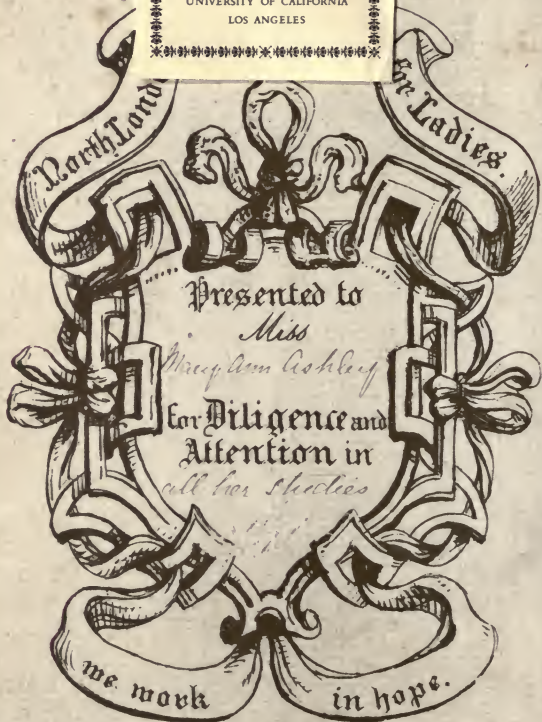 UNIVERSITY OF CALIFORNIA
LOS ANGELES
North Lond
for Ladies.
Presented to
Miss
Mary Ann Ashley
for Diligence and
Attention in
all her studies
we work in hope.